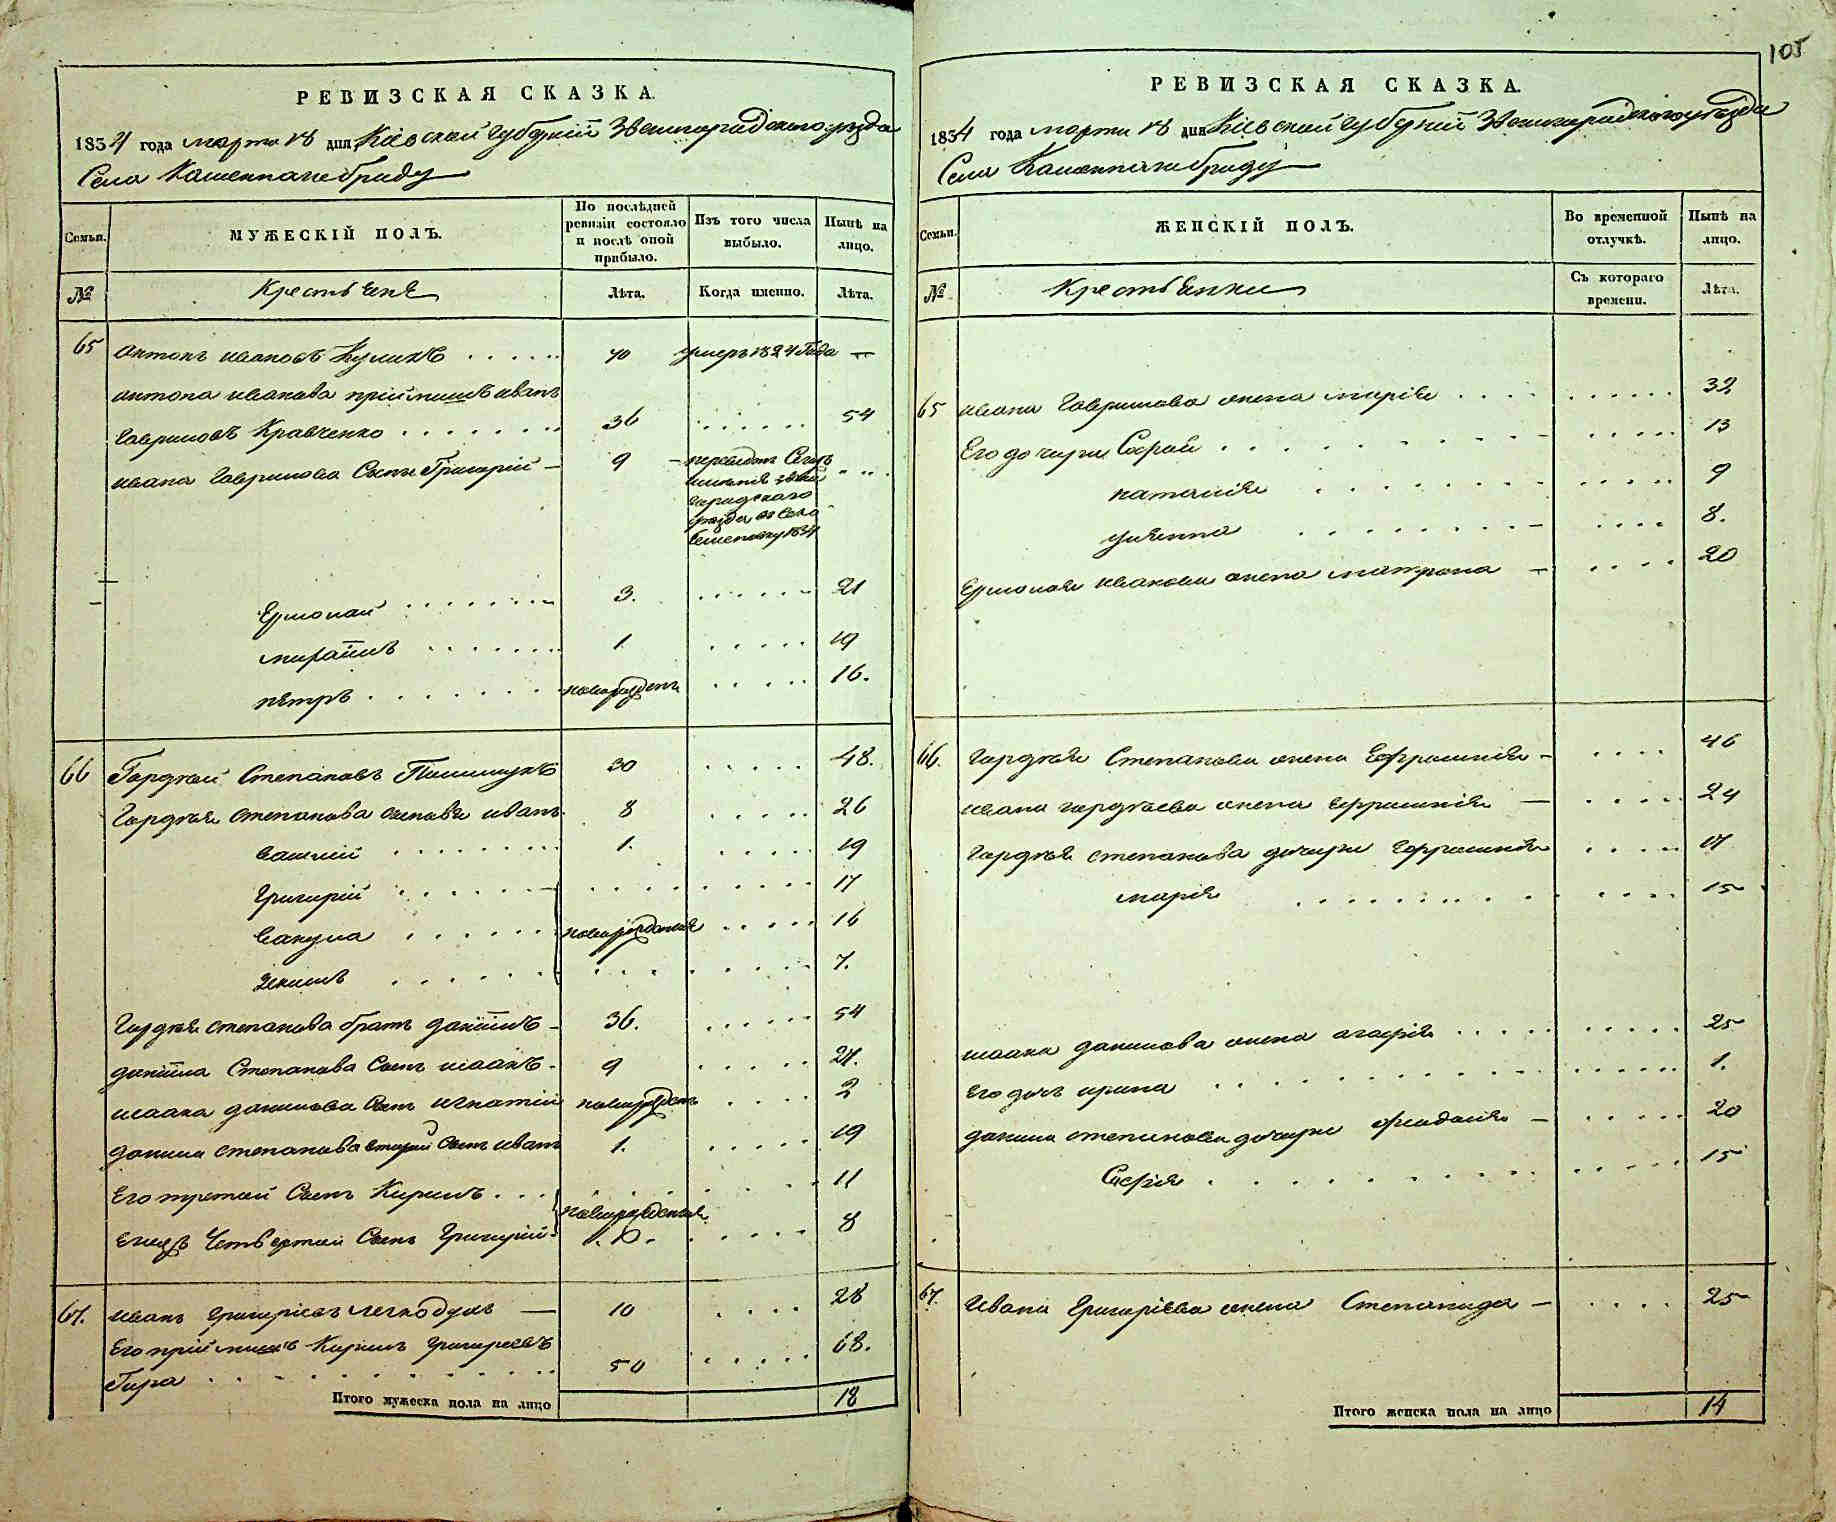 105
РЕВИЗСКАЯ СКАЗКА.
1834 года марта 18 дня Кіевской Губерніи Звенигородского уезда
Села Каменнагоброду
Семьи. МУЖЕСКІЙ ПОЛЪ. По послѣдней ревизіи состояло и послѣ оной прибыло. Изъ того числа выбыло. Нынѣ на лицо.
№ Крестьяне Лѣта. Когда именно. Лѣта.
65 Антонъ ивановъ Куликъ 40 умеръ 1824 Года —
антона иванова пріймишъ иванъ
Гавриловъ Кравченко 36 54
ивана Гаврилова Сынъ Григорій 9 переведенъ
уезда въ село
1831
Ермолай 3. 21
михаилъ 1 19
петръ новорожденъ 16.
66 Гордѣй Степановъ 30 48.
Гордѣя степанова сыновя иванъ 8 26
василій 1. 19
Григорій 17
Вакула новорожденые 16
Демидъ 7.
Гордѣя степанова братъ даніилъ 36. 54
даніила Степанова Сынъ исаакъ 9 27.
исаака данилова Сынъ игнатій новорожденъ 2
данила степанова вторый Сынъ иванъ 1. 19
Его третій Сынъ Кирилъ 11
Егожъ Четвертый Сынъ Григорій новорожденые 8
67. иванъ Григоріевъ легкодухъ 10 28
Его пріймишъ Кирилъ Григорьевъ
Гира 50 68.
Итого мужеска пола на лицо 18
РЕВИЗСКАЯ СКАЗКА.
1834 года марта 18 дня Кіевской Губерніи Звенигородского уезда
Села Каменнагоброду
Семьи. ЖЕНСКІЙ ПОЛЪ. Во временной отлучкѣ. Нынѣ на лицо.
№ Крестьянки Съ котораго времени. Лѣта.
65 ивана Гаврилова жена марія 32
Его дочери Софія 13
наталія 9
уліянна 8.
Ермолая иванова жена матрона 20
66. Гордѣя Степанова жена Ефросинія 46
ивана гордѣева жена ефросинія 24
Гордѣя степанова дочери Ефросинія 17
марія 15
исаака данилова жена агафія 25
Его дочь ирина 1.
данила степанова дочери феодосія 20
Софія 15
67. Ивана Григоріева жена Степанида 25
Итого женска пола на лицо 14